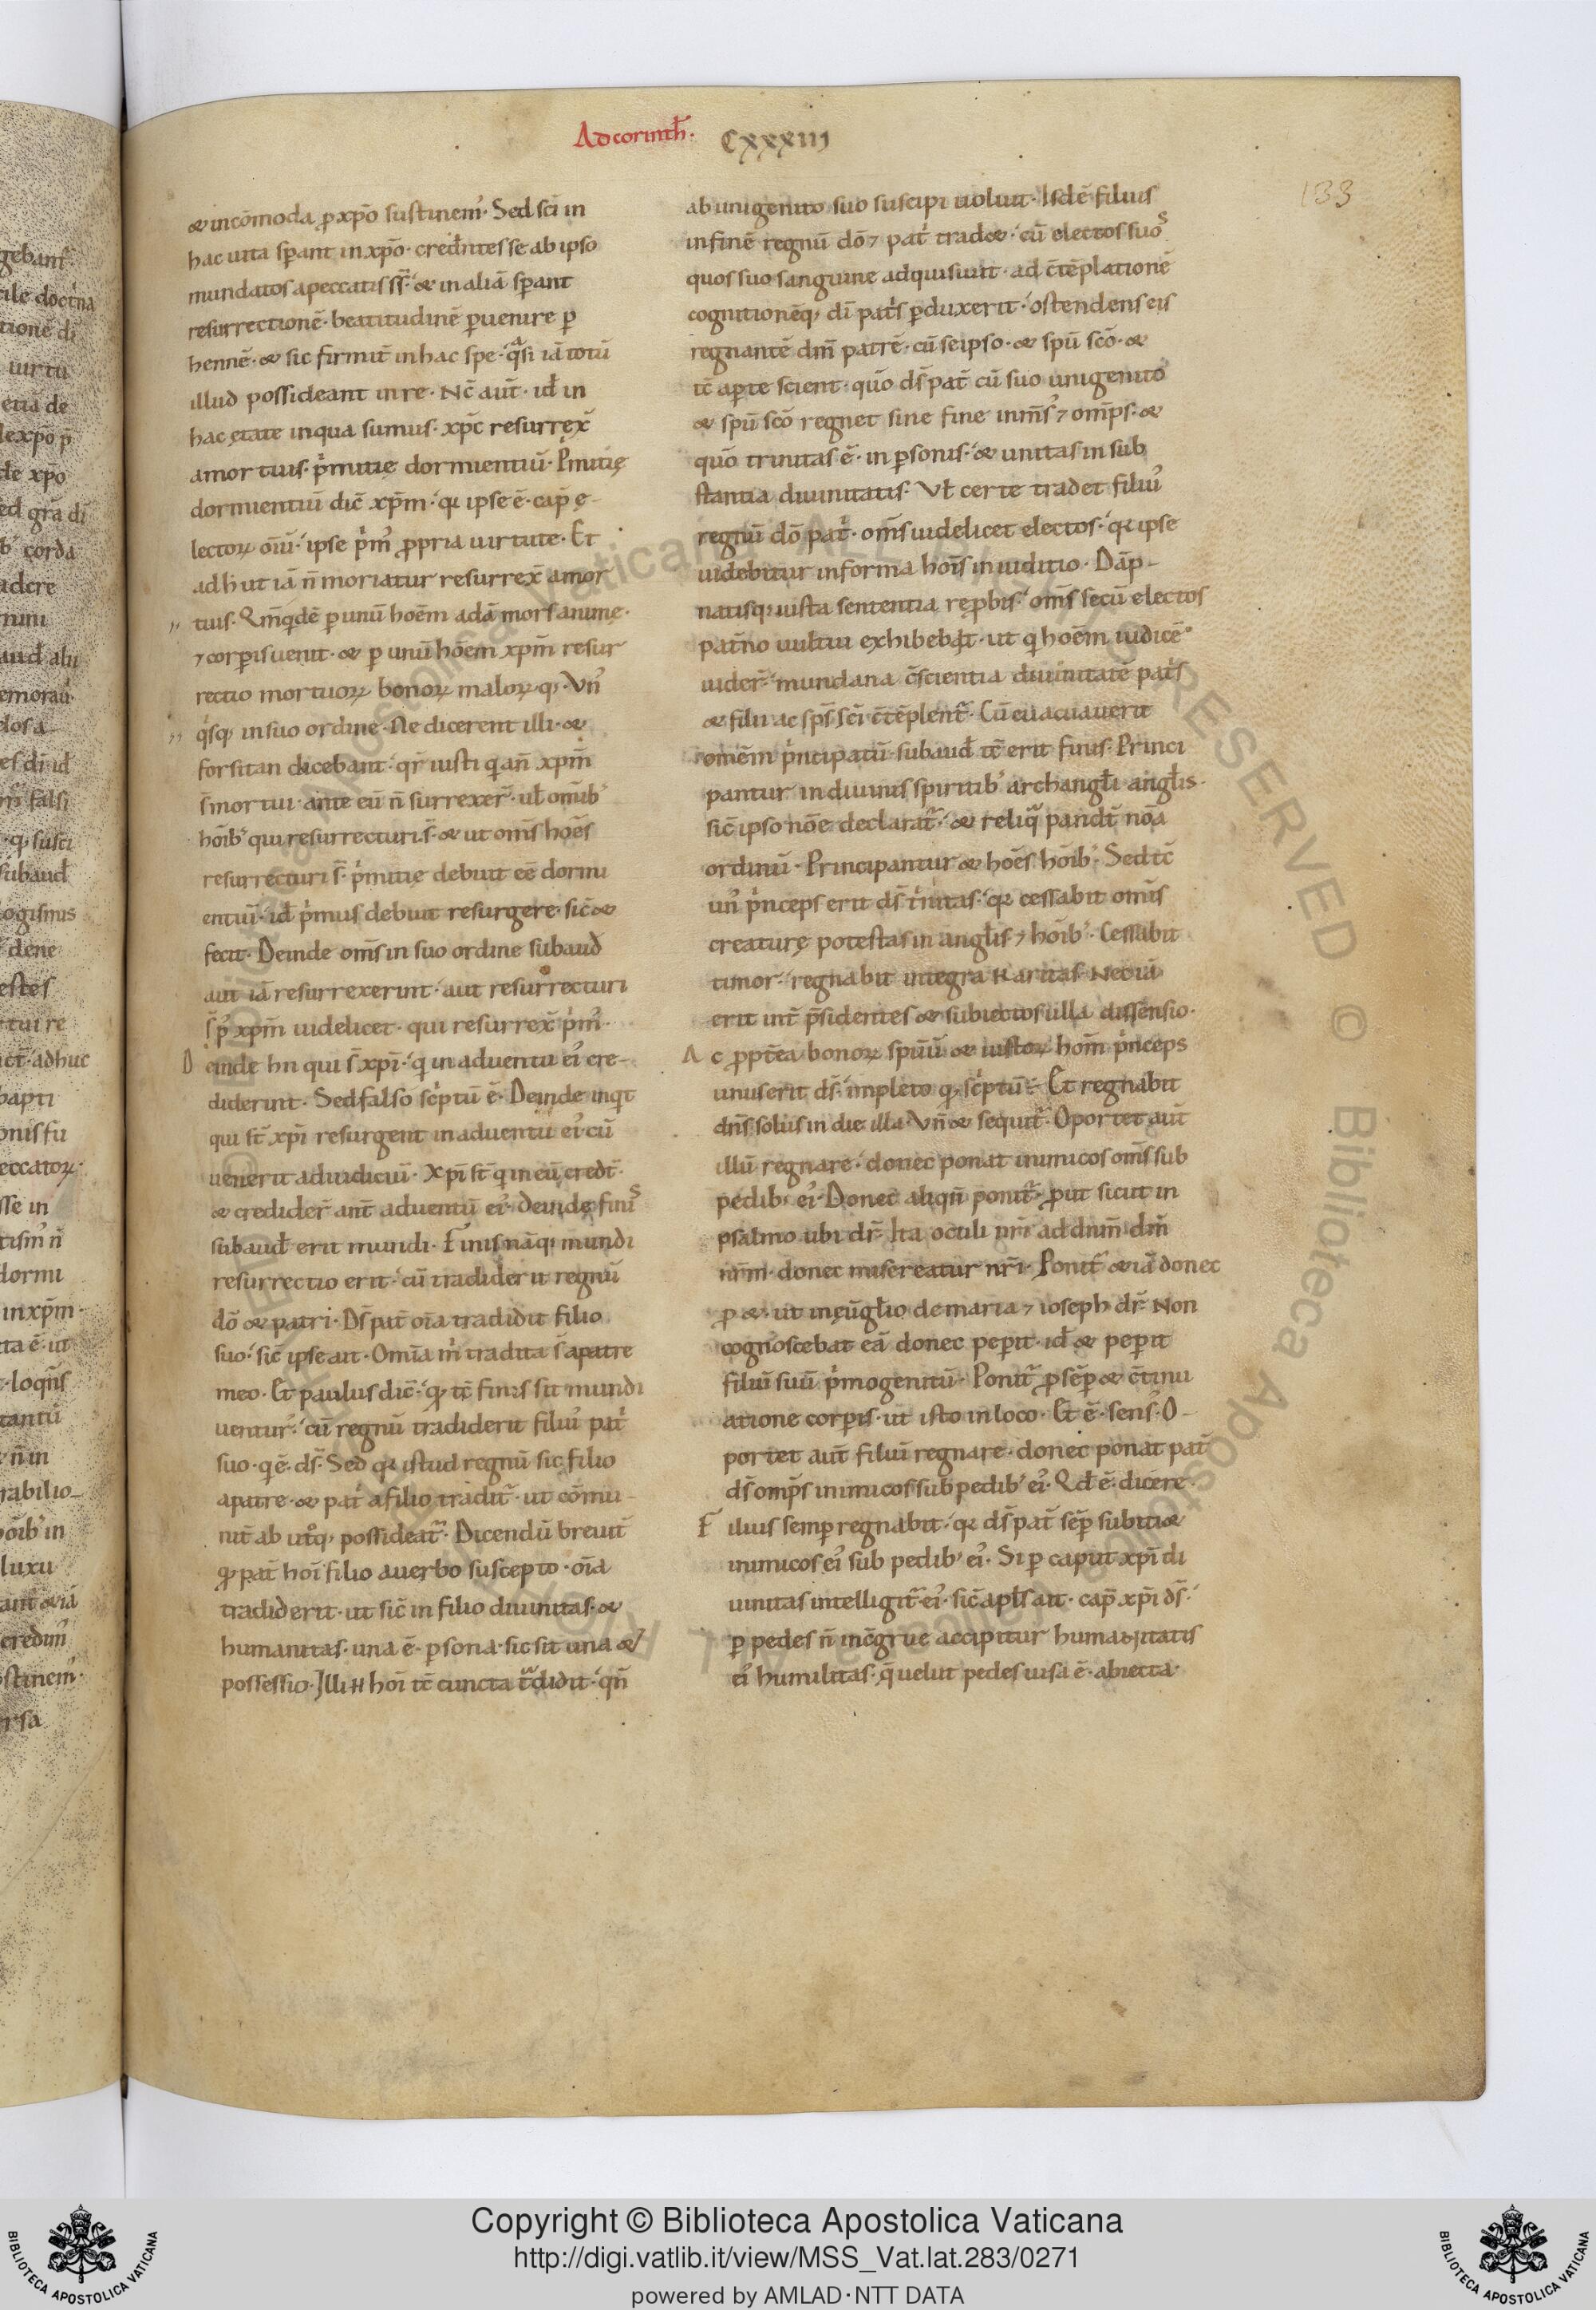 Ad corinth̄. Cxxxiii
133
& incōmoda ꝓ xp̄o sustinem᾽. Sed sc̄i in
hac uita sꝑant in xp̄o. cred̄ntes se ab ipso
mundatos a peccatis ss̄. & in aliā sꝑant
resurrectionē. beatitudinē ꝑuenire ꝑ
hennē. & sic firmit̄ in hac spe. qᷓsi iā totū
illud possideant in re. Nc̄ aut̄. id̄ in
hac ętate in qua sumus. xp̄c resurrex̄
a mortuis. pͥmitię dormientiū. Pͥmitię
dormientiū dic̄ xp̄m. qꝛ ipse ē. cap̄ e-
lectoꝝ oīū. ipse pͥm᾽ ꝓpria uirtute. Et
ad h̄ ut iā n̄ moriatur resurrex̄ a mor
tuis. Qm̄ qͥdē ꝑ unū hoēm adā mors animę.
⁊ corꝑis uenit. & ꝑ unū hōēm xp̄m resur
rectio mortuoꝝ bonoꝝ maloꝝq;. Vn᾽
qͥsq; in suo ordine. Ne dicerent illi. &
forsitan dicebant. qr̄ iusti qͥ an̄ xp̄m̄
s̄ mortui. ante eū n̄ surrexer̄. ul̄ omīb᾽
hōib᾽ qui resurrecturi s̄. & ut om̄s hoēs
resurrecturi s̄. pͥmitię debuit eē dormi
entiū. id̄ pͥmus debuit resurgere. sic̄ &
fecit. Deinde om̄s in suo ordine subaud̄
aut iā resurrexerint. aut resurrecturi
s̄ p᾽ xp̄m uidelicet. qui resurrex̄ pͥm᾽.
D einde hii qui s̄ xp̄i. qͥ in aduentu ei᾽ cre-
diderint. Sed falso sc̄ptū ē. Deinde inqͥt
qui st̄ xp̄i resurgent in aduentu ei᾽ cū
uenerit ad iudiciū. Xp̄i st̄ qͥ in eū credt̄.
& credider̄ ant̄ aduentū ei᾽. deinde finis
subaud̄ erit mundi. Finis nāq; mundi
resurrectio erit. cū tradiderit regnū
dō & patri. Ds̄ pat̄ oīa tradidit filio
suo. sic̄ ipse ait. Omīa mͥ tradita s̄ a patre
meo. Et paulus dic̄. qͥ tc̄ finis sit mundi
uentur᾽. cū regnū tradiderit filiu᾽ patͥ
suo. qͥ ē. ds̄. Sed qꝛ istud regnū sic filio
a patre. & patͥ a filio tradit̄. ut cōmu-
nit̄ ab utͦq; possideat̄. Dicendū breuit̄
qͥ pat̄ hoī filio a uerbo suscepto. oīa
tradiderit. ut sic̄ in filio diuinitas. &
humanitas. una ē. ꝑsona. sic sit una &
possessio. Illi ħ hoī tc̄ cuncta tᷓdidit. qn̄
ab unigenito suo suscipi uoluit. Isdē filius
in finē regnū dō ⁊ patͥ trad&. cū electos suos
quos suo sanguine adquisiuit. ad c̄tēplationē
cognitionēq; dī patͥs ꝑduxerit. ostendens eis
regnantē dm̄ patrē. cū se ipso. & spū sc̄o. &
tc̄ aꝑte scient. quō ds̄ pat̄ cū suo unigenito
& spū sc̄o regnet sine fine inm̄s᾽ ⁊ om̄ps. &
quō trinitas ē. in ꝑsonis. & unitas in sub
stantia diuinitatis. Vl̄ certe tradet filiu᾽
regnū dō patͥ. om̄s uidelicet electos. qꝛ ipse
uidebitur in forma hoīs in iuditio. Dāp-
natisq; iusta sententia reꝓbis. om̄s secū electos
pat̄no uultui exhibebit. ut qͥ hoēm iudicē
uider̄. mundana c̄scientia diuinitatē patͥs
& filii ac sp̄s sc̄i c̄tēplent̄. Cū euacuauerit
omēm pͥncipatū. subaud̄ tc̄ erit finis. Princi
pantur in diuinis spiritib᾽ archangl̄i angl̄is.
sic̄ ipso nōe declarat̄. & reliqᷓ pandt̄ nōa
ordinū. Principantur & hoēs hōib᾽. Sed tc̄
un᾽ pͥnceps erit ds̄ tͥnitas. qꝛ cessabit om̄is
creaturę potestas in angl̄is ⁊ hōib᾽. Cessabit
timor. regnabit integra karitas. Nec iā
erit int̄ p̄sidentes & subiectos ulla dissensio.
A c ꝓpt̄ea bonoꝝ spūū & iustoꝝ hoīm pͥnceps
unus erit ds̄. impleto qͥ sc̄ptū ÷ Et regnabit
dn̄s solus in die illa. Vn̄ & sequit̄. Oportet aut̄
illū regnare. donec ponat inimicos om̄s sub
pedib; ei᾽. Donec aliqn̄ ponit̄. ꝓut sicut in
psalmo ubi dr̄. Ita oculi nr̄i ad dnm̄ dm̄
nr̄m. donec misereatur nr̄i. Ponit̄ & iā donec
ꝓ &. ut in eūgl̄io de maria ⁊ ioseph dr̄. Non
cognoscebat eā donec peꝑit. id̄ & peꝑit
filiū suū pͥmogenitū. Ponit̄ ꝓ sēꝑ & c̄tinu
atione corꝑis. ut isto in loco. Et ē. sens᾽. O-
portet aut̄ filiū regnare. donec ponat pat̄
ds̄ omp̄s inimicos sub pedib᾽ ei᾽. Qd̄ ē. dicere.
F ilius semꝑ regnabit. qꝛ ds̄ pat̄ sēꝑ subici&
inimicos ei᾽ sub pedib᾽ ei᾽. Si ꝑ caput xp̄i di
uinitas intelligit̄ ei᾽. sic̄ apl̄s ait. cap̄ xp̄i ds̄.
ꝑ pedes n̄ inc̄grue accipitur humanitatis
ei᾽ humilitas. q̄ uelut pedes uisa ē. abiecta.
Copyright © Biblioteca Apostolica Vaticana
http://digi.vatlib.it/view/MSS_Vat.lat.283/0271
powered by AMLAD·NTT DATA